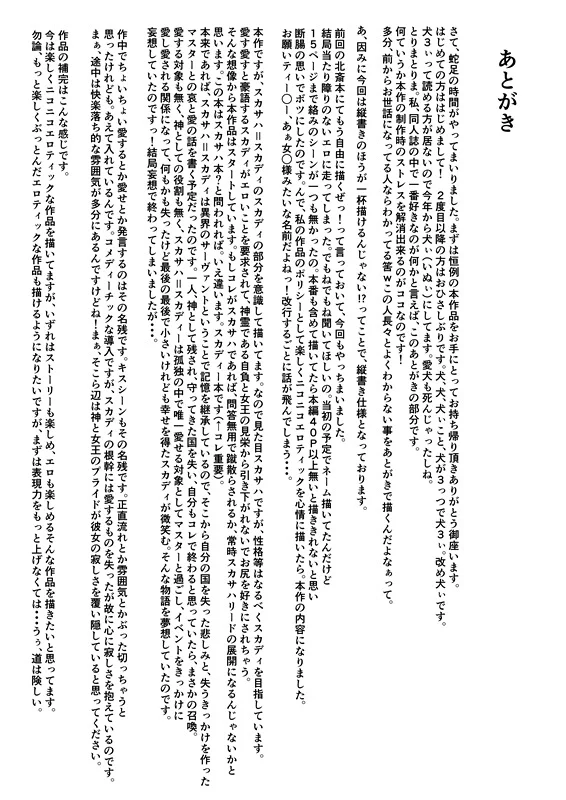 あとがき
さて、蛇足の時間がやってまいりました。まずは恒例の本作品をお手にとってお持ち帰り頂きありがとう御座います。
はじめての方ははじめまして！　2度目以降の方はおひさしぶりです。犬、犬、犬ぃこと、犬が3っつで犬3ぃ。改め犬ぃです。
犬3ぃって読める方が居ないので今年から犬ぃ(いぬぃ)にしてます。愛犬も死んじゃったしね。
とりまとりま。私、同人誌の中で一番好きなのが何かと言えば、このあとがきの部分です。
何ていうか本作の制作時のストレスを解消出来るのがココなのです！
多分、前からお世話になってる人ならわかってる筈wこの人長々とよくわからない事をあとがきで描くんだよなぁって。
あ、因みに今回は縦書きのほうが一杯描けるんじゃない!?ってことで、縦書き仕様となっております。
前回の北斎本にてもう自由に描くぜっ！って言っておいて、今回もやっちまいました。
結局当たり障りのないエロに走ってしまった。でもねでもね聞いてほしいの。当初の予定でネーム描いてたんだけど
15ページまで絡みのシーンが一つも無かったの。本番も含めて描いてたら本編40P以上無いと描ききれないと思い
断腸の思いでボツにしたのです。んで、私の作品のポリシーとして楽しくニコニコエロティックを心情に描いたら。本作の内容になりました。
お願いティー〇ー、あぁ女〇様みたいな名前だよねっ！改行するごとに話が飛んでしまう・・・。
本作ですが、スカサハ＝スカディのスカディの部分を意識して描いてます。なので見た目スカサハですが、性格等はなるべくスカディを目指しています。
愛す愛すと豪語するスカディがエロいことを要求されて、神霊である自負と女王の見栄から引き下がれないでお尻を好きにされちゃう。
そんな想像から本作品はスタートしています。もしコレがスカサハであれば、問答無用で蹴散らされるか、常時スカサハリードの展開になるんじゃないかと
思います。この本はスカサハ本？と問われれば。いえ違います。スカディー本です(↑コレ重要)。
本来であれば、スカサハ＝スカディは異界のサーヴァントということで記憶を継承しているので、そこから自分の国を失った悲しみと、失うきっかけを作った
マスターとの哀と愛の話を書く予定だったのです。一人、神として残され、守ってきた国を失い、自分もコレで終わると思っていたら、まさかの召喚。
愛する対象も無く、神としての役割も無く、スカサハ＝スカディーは孤独の中で唯一愛せる対象としてマスターと過ごし、イベントをきっかけに
愛し愛される関係になって、何もかも失ったけど最後の最後で小さいけれども幸せを得たスカディが微笑む。そんな物語を夢想していたのです。
妄想していたのですっ！結局妄想で終わってしまいましたが・・・。
作中でちょいちょい愛するとか愛せとか発言するのはその名残です。キスシーンもその名残です。正直流れとか雰囲気とかぶった切っちゃうと
思ったけれども。あえて入れているんです。コメディーチックな導入ですが、スカディの根幹には愛するものを失ったが故に心に寂しさを抱えているのです。
まぁ、途中は快楽落ち的な雰囲気が多分にあるんですけどね！まぁ、そこら辺は神と女王のプライドが彼女の寂しさを覆い隠していると思ってください。
作品の補完はこんな感じです。
今は楽しくニコニコエロティックな作品を描いてますが、いずれはストーリーも楽しめ、エロも楽しめるそんな作品を描きたいと思ってます。
勿論、もっと楽しくぶっとんだエロティックな作品も描けるようになりたいですが、まずは表現力をもっと上げなくては・・・うぅ、道は険しい。